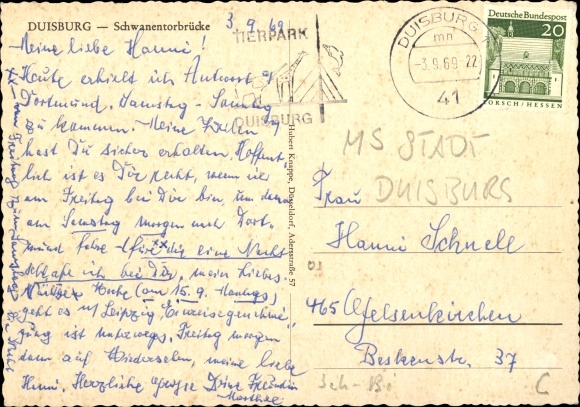 DUISBURG — Schwanentorbrücke
3.9.69
Meine liebe Hanni!
Heute erhielt ich Antwort
Dortmund. Samstag - Sonntag
zu kommen. Meine Zeilen
hast Du sicher erhalten. Hoffent
lich ist es Dir recht, wenn ich
am Freitag bei Dir bin, um dann
am Samstag morgen nach Dort-
mund fahre. für die eine Nacht
schlafe ich bei Dir, mein liebes
Heute (am 15.9. Montags)
geht es n/ Leipzig Einreisegenehmi
gung ist unterwegs, Freitag morgen
dann auf Wiedersehen, meine liebe
Hanni. Herzliche Grüsse Deine Freundin
TIERPARK
DUISBURG
DUISBURG
mn
-3.9.69 22
41
Deutsche Bundespost
20
LORSCH/HESSEN
Hubert Knippe, Düsseldorf, Adersstraße 57
MS STADT
DUISBURG
Frau
Hanni Schnell
465 Gelsenkirchen
37
C